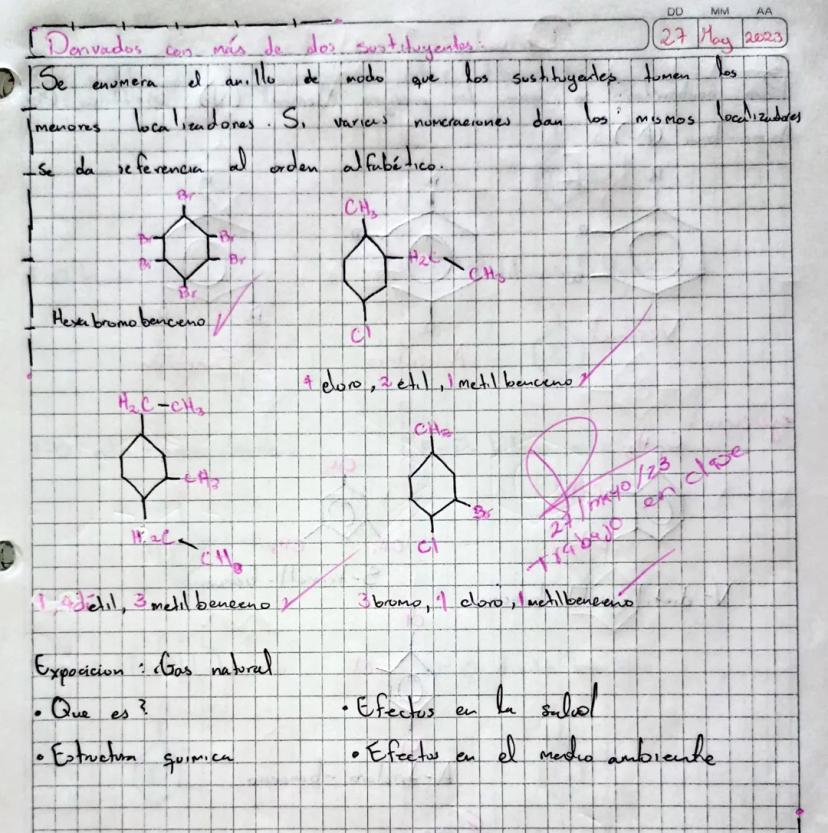 DD MM AA
27 May 2023
Derivados con más de dos sustituyentes:
Se enumera el anillo de modo que los sustituyentes tomen los
menores localizadores. Si varias numeraciones dan los mismos localizadores
se da referencia al orden alfabético.
Br
Br Br
Br Br
Br
Hexabromobenceno
CH3
H2C
CH3
Cl
4 cloro, 2 étil, 1 metil benceno
H2C-CH3
CH3
H2C
CH3
1, 4 diétil, 3 metil benceno
CH3
Br
Cl
3 bromo, 4 cloro, 1 metilbenceno
27/mayo/23
Trabajo en clase
Exposicion: Gas natural
• Que es?
• Efectos en la salud
• Estructura quimica
• Efectos en el medio ambiente